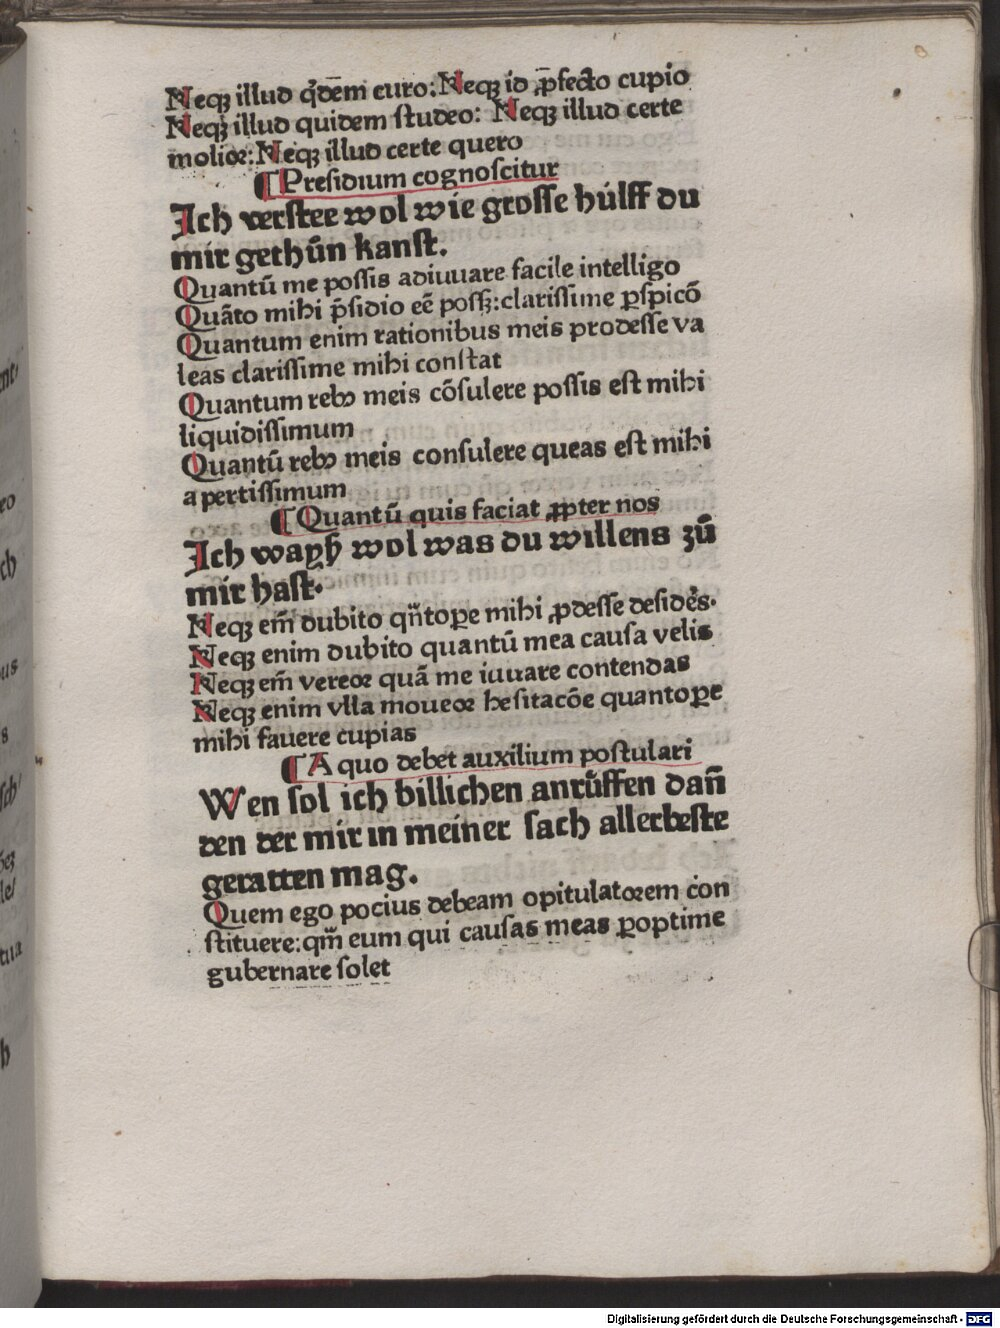 Neqꝫ illud q̄dem curo: Neqꝫ id ꝓfecto cupio
Neqꝫ illud quidem ſtudeo: Neqꝫ illud certe
molioꝛ: Neqꝫ illud certe quero
¶ Preſidium cognoſcitur
Ich verſtee wol wie groſſe húlff du
mir gethūn kanſt.
Quantū me poſſis adiuuare facile intelligo
Quāto mihi p̄ſidio eē poſſꝫ: clariſſime ꝑſpicō
Quantum enim rationibus meis prodeſſe va
leas clariſſime mihi conſtat
Quantum rebꝰ meis cōſulere poſſis eſt mihi
liquidiſſimum
Quantū rebꝰ meis conſulere queas eſt mihi
apertiſſimum
¶ Quantū quis faciat ꝓpter nos
Ich wayß wol was du willens zū
mir haſt.
Neqꝫ em̄ dubito qn̄toꝑe mihi ꝓdeſſe deſideꝰs.
Neqꝫ enim dubito quantū mea cauſa velis
Neqꝫ em̄ vereoꝛ quā me iuuare contendas
Neqꝫ enim vlla moueoꝛ heſitacōe quantoꝑe
mihi fauere cupias
¶ A quo debet auxilium poſtulari
Wen ſol ich billichen anrůffen dan̄
den der mir in meiner ſach allerbeſte
geratten mag.
Quem ego pocius debeam opitulatoꝛem con
ſtituere: qm̄ eum qui cauſas meas ꝑoptime
gubernare ſolet
Digitalisierung gefördert durch die Deutsche Forschungsgemeinschaft - DFG